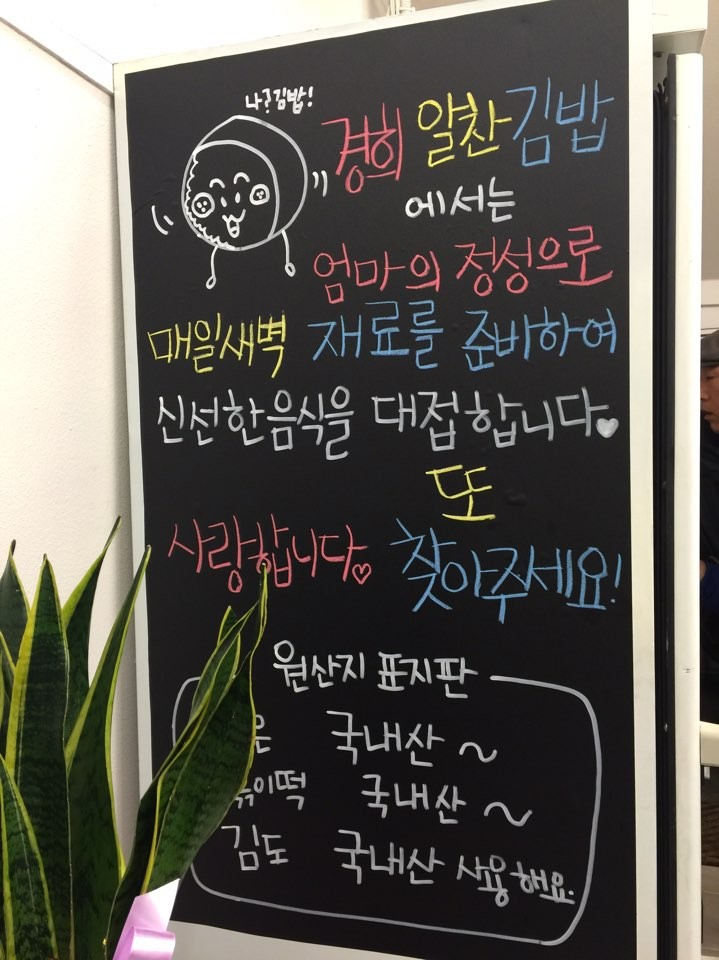 나?김밥!
경희 알찬김밥
에서는
엄마의 정성으로
매일새벽 재료를 준비하여
신선한음식을 대접합니다♥
또
사랑합니다♡ 찾아주세요!
원산지 표지판
은 국내산~
볶이떡 국내산~
김도 국내산 사용해요.